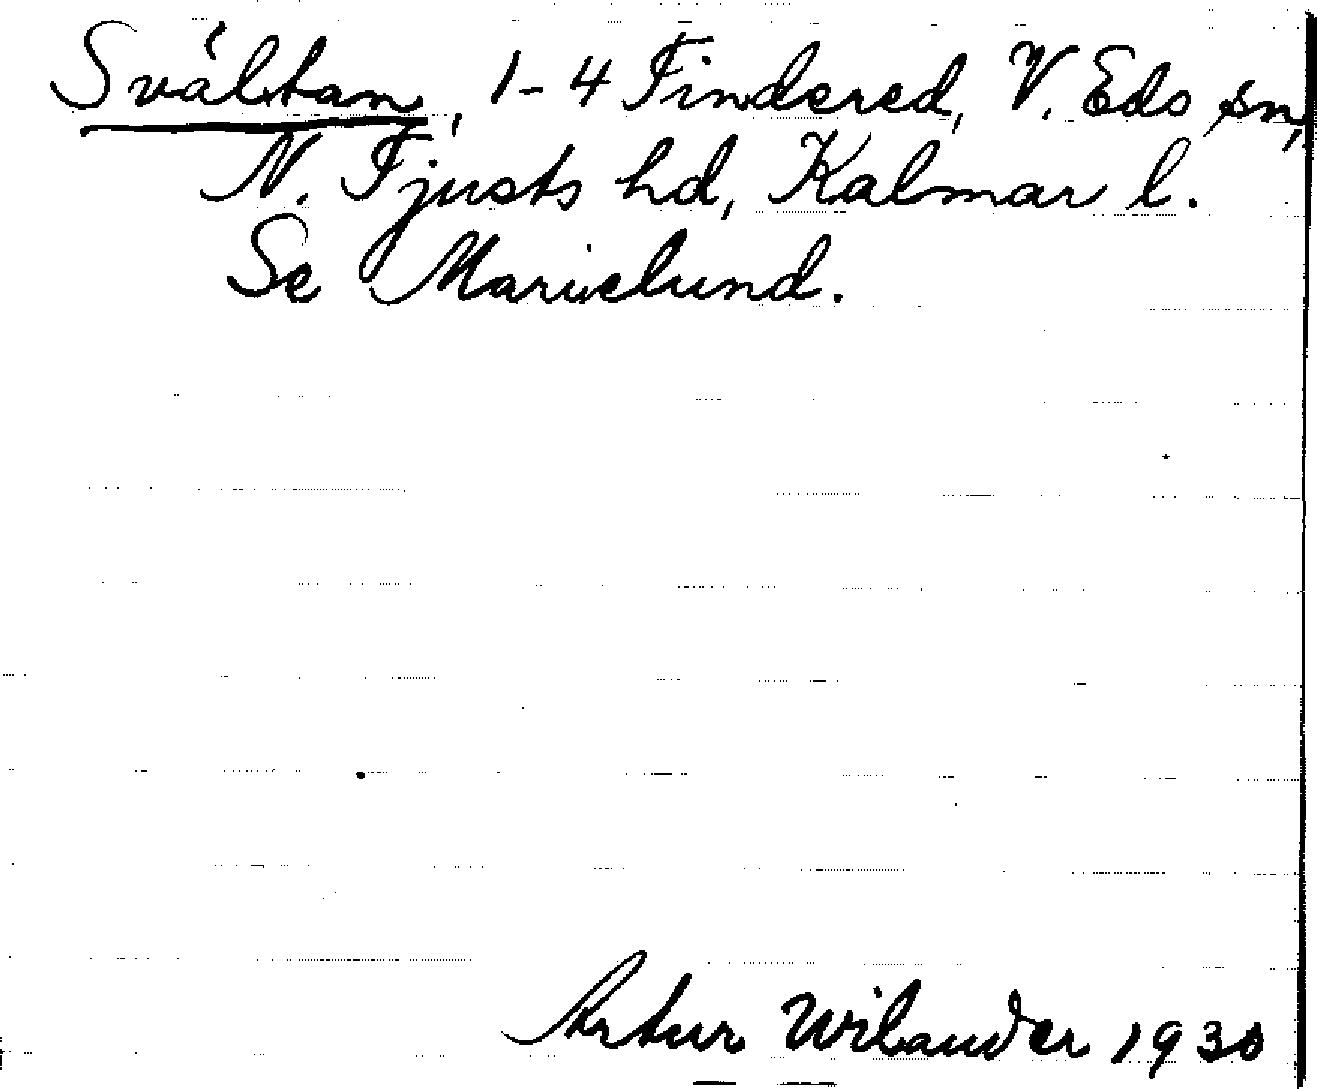 Svältan, 1-4 Tindered, V. Eds sn,
N. Tjusts hd, Kalmar l.
Se Marielund.
Artur Wilander 1930